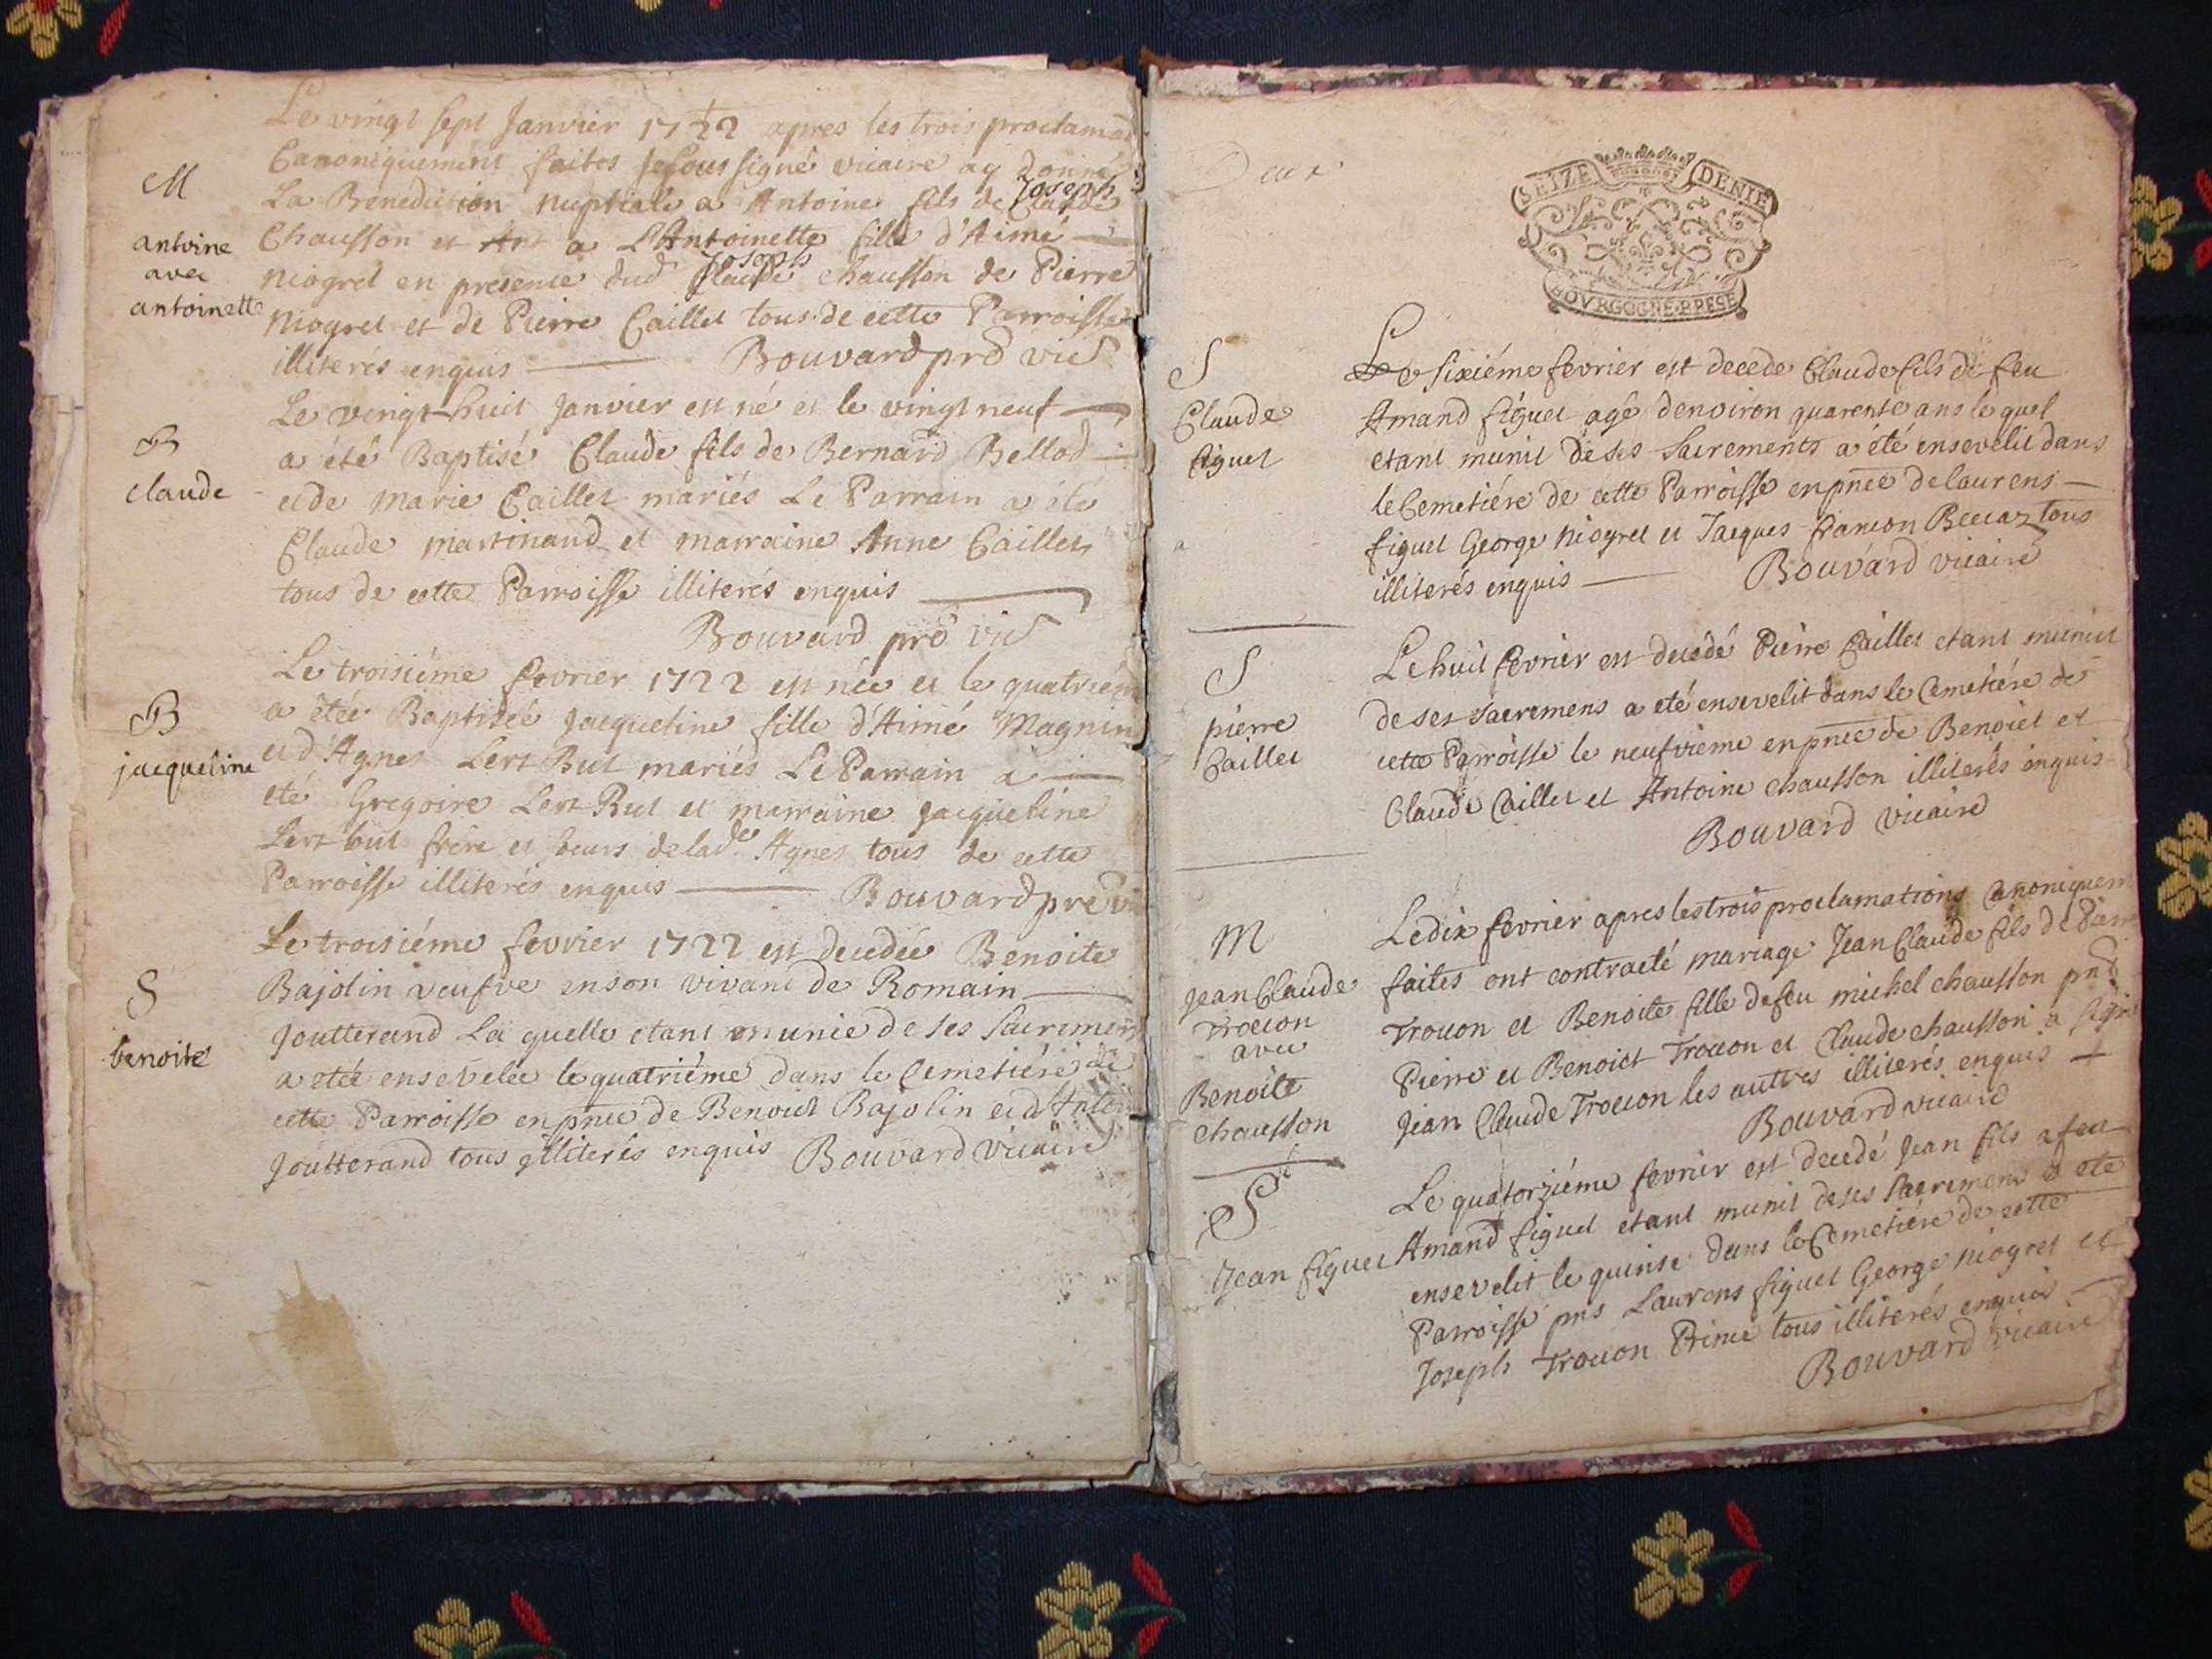 Le vingt sept Janvier 1722 apres les trois proclama
Canoniquement faites Je soussigné vicaire ay donné
M
La Benediction nuptiale a Antoine fils de Claude Joseph
antoine
avec
antoinette
Chausson et Ant a L'Antoinette fille d'Aimé
niogret en presence dud Claude Joseph chausson de Pierre
niogret et de Pierre Caillet tous de cette Parroisse
illiterés enquis Bouvard prê vic
B
claude
Le vingt huit Janvier est né et le vingt neuf
a été Baptisé Claude fils de Bernard Bellod
et de marie Caillet mariés Le Parrain a été
Claude martinand et marraine Anne Caillet
tous de cette Parroisse illiterés enquis
Bouvard prê vic
B
jacqueline
Le troisiéme fevrier 1722 est née et le quatriem
a étée Baptisée Jacqueline fille d'Aimé Magnin
et d'Agnes Lert But mariés Le Parrain a
eté Gregoire Lert But et marraine Jacqueline
Lert but frere et soeurs de lad.e Agnes tous de cette
Parroisse illiterés enquis Bouvard prê vi
S
benoite
Le troisiéme fevrier 1722 est decedée Benoite
Bajolin veufve en son vivant de Romain
Joutterand La quelle etant munie de ses sacremens
a etée ensevelée le quatriéme dans le Cemetiére de
cette Parroisse en pnce de Benoict Bajolin et
Joutterand tous illiterés enquis Bouvard vicaire
Deux
SEIZE DENIE
BOVRGOGNE BRESE
S
Claude
figuet
Le sixiéme fevrier est decede Claude fils de feu
Amand figuet agé denviron quarente ans le quel
etant munit de ses sacrements a été ensevelit dans
le Cemetiére de cette Parroisse en pnce de laurens
figuet George niogret et Jacques francon Beccaz tous
illiterés enquis Bouvard vicaire
S
pierre
Caillet
Le huit fevrier est decédé Pierre Caillet etant munit
de ses sacremens a eté ensevelit dans le Cemetiére de
cette Parroisse le neufvieme en pnce de Benoict et
Claude Caillet et Antoine chausson illiterés enquis
Bouvard vicaire
M
Jean Claude
Trocon
avec
Benoite
chausson
Le dix fevrier apres les trois proclamations Canoniquem
faites ont contracté mariage Jean Claude fils de Pierre
Trocon et Benoite fille de feu michel chausson pns
Pierre et Benoict Trocon et Claude chausson a signé
Jean Claude Trocon les autres illiterés enquis
Bouvard vicaire
S
Jean figuet
Le quatorziéme fevrier est decedé Jean fils a feu
Amand figuet etant munit de ses sacremens a eté
ensevelit le quinse dans le Cemetiére de cette
Parroisse pns Laurens figuet George niogret et
Joseph Trocon Prince tous illiterés enquis
Bouvard vicaire